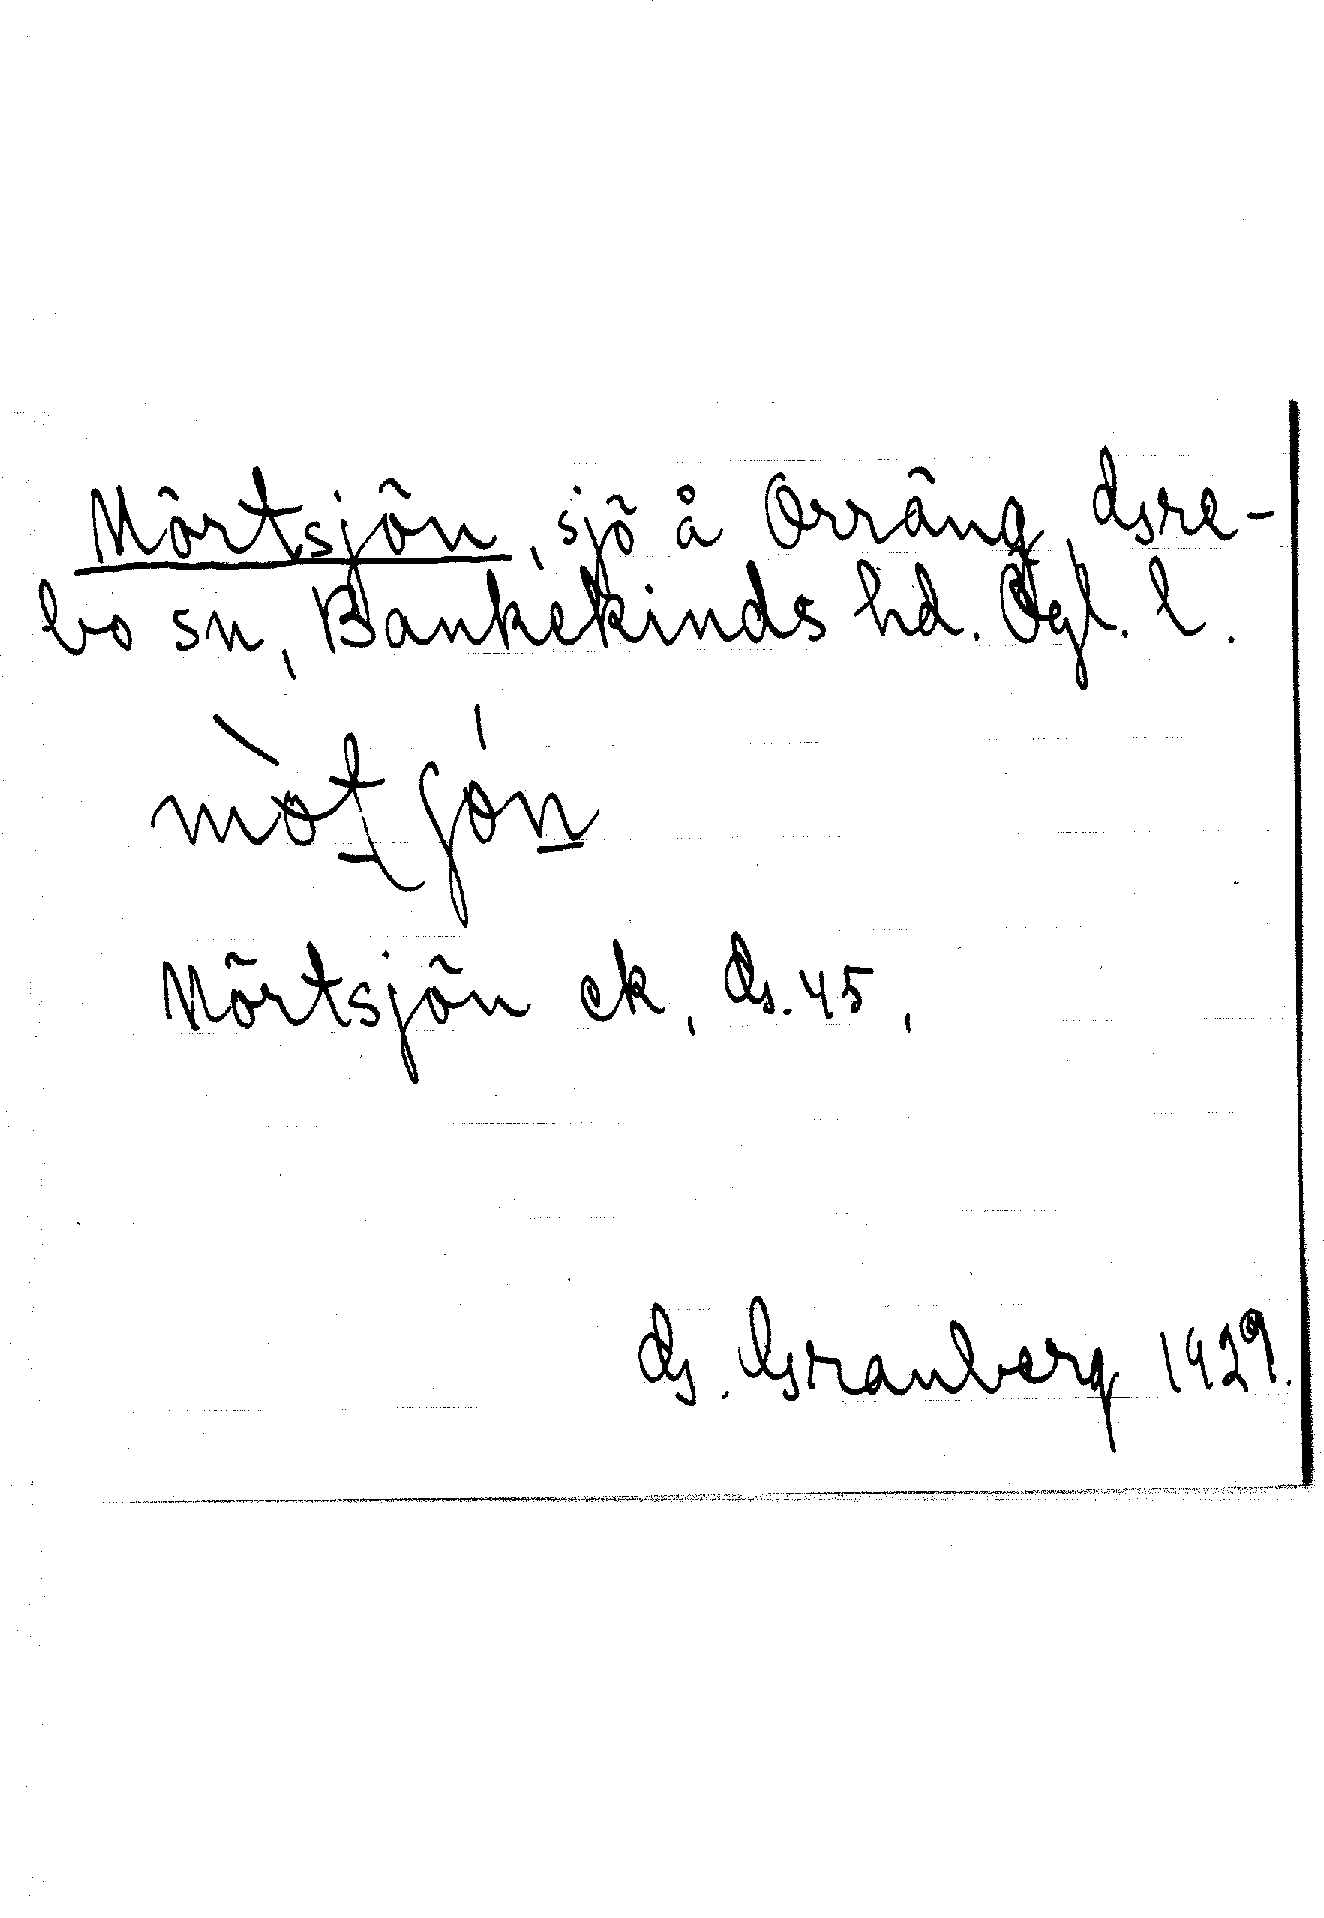 Mörtsjön, sjö å Orräng, Gre-
bo sn, Bankekinds hd. Ögl. l.
Mörtsjön ek, G. 45,
G. Granberg 1929.